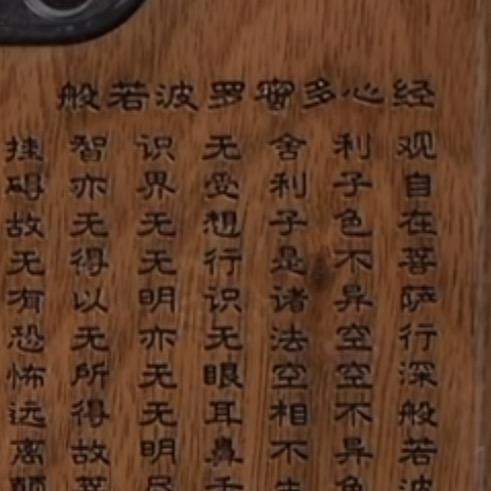 般若波罗密多心经
观自在菩萨行深般若波
利子色不异空空不异色
舍利子是诸法空相不生
无受想行识无眼耳鼻舌
识界无无明亦无无明尽
智亦无得以无所得故菩
挂碍故无有恐怖远离颠